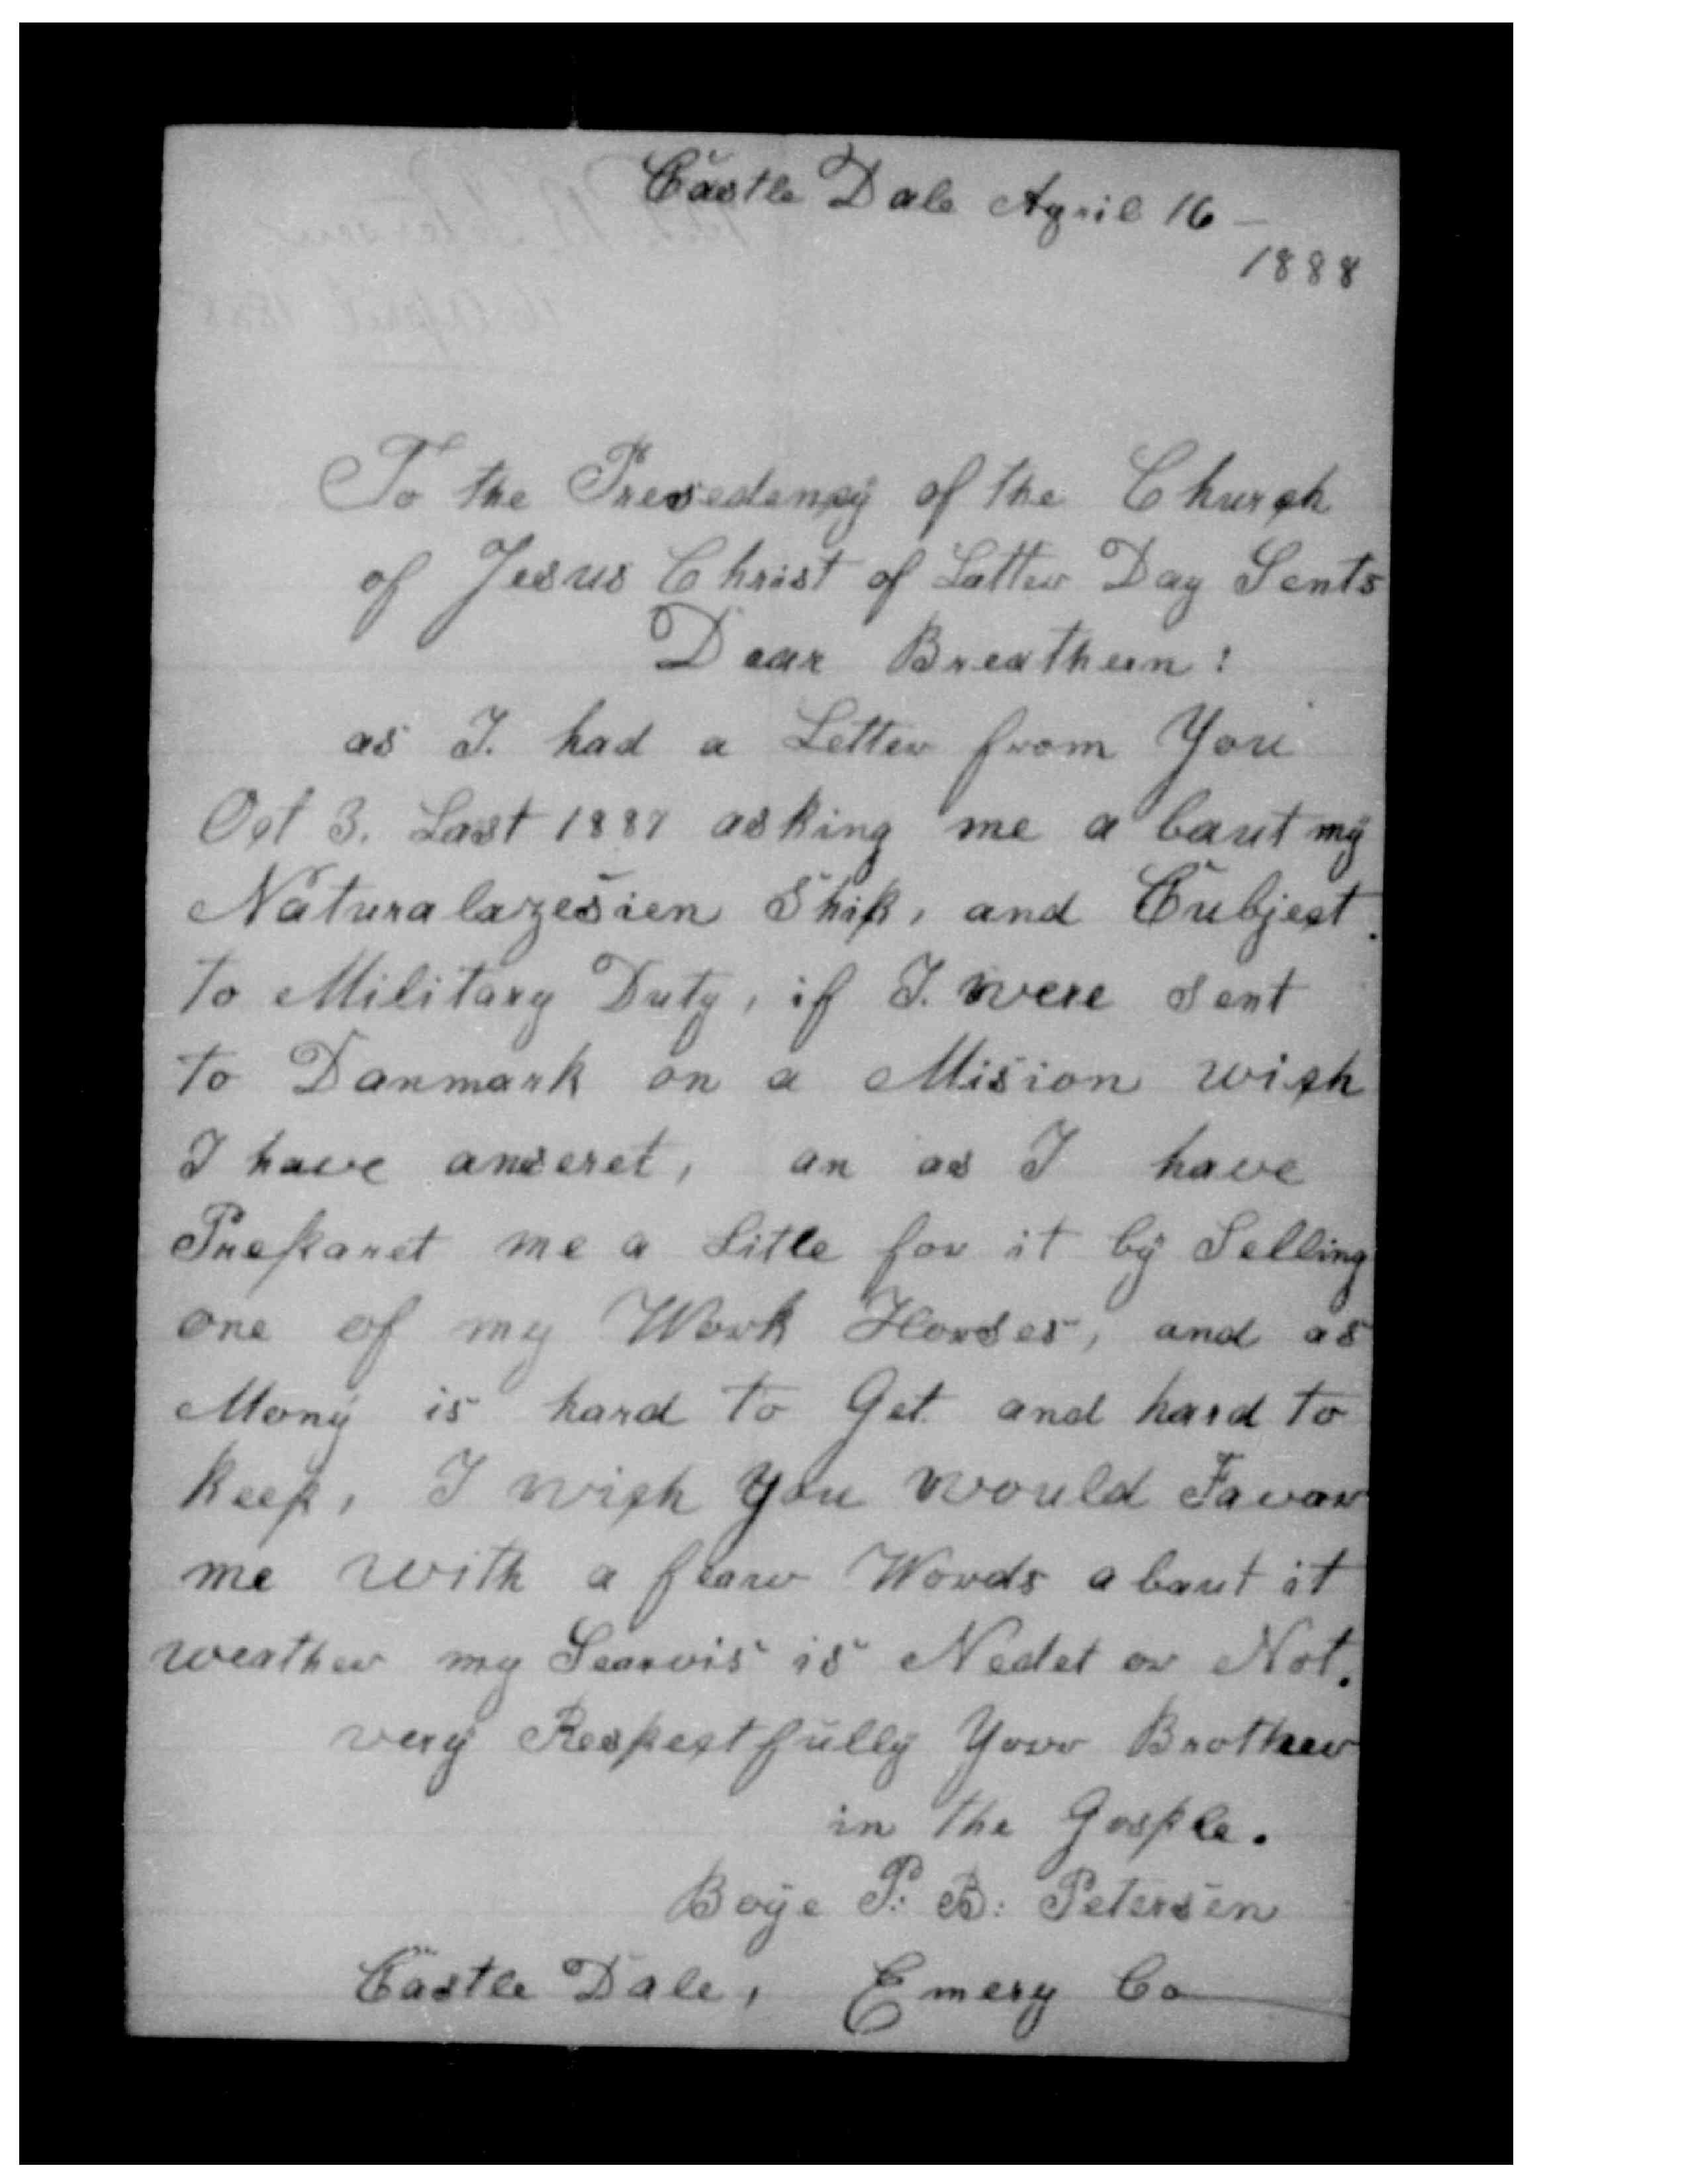 Castle Dale April 16 –
1888
To the Presedency of the Church
of Jesus Christ of Latter Day Sents
Dear Breathern:
as I. had a Letter from You
Oct 3. Last 1887 asking me a baut my
Naturalazesien Ship, and Cubject.
to Military Duty, if I. were sent
to Danmark on a Mision wich
I have anseret, an as I have
Preparet me a Litle for it by Selling
one of my Work Horses, and as
Mony is hard to Get and hard to
keep, I wich you would Favor
me with a feaw Words a baut it
weather my Searvis is Nedet or Not.
very Respectfully Your Brother
in the Gosple.
Boye P. B. Petersen
Castle Dale, Emery Co